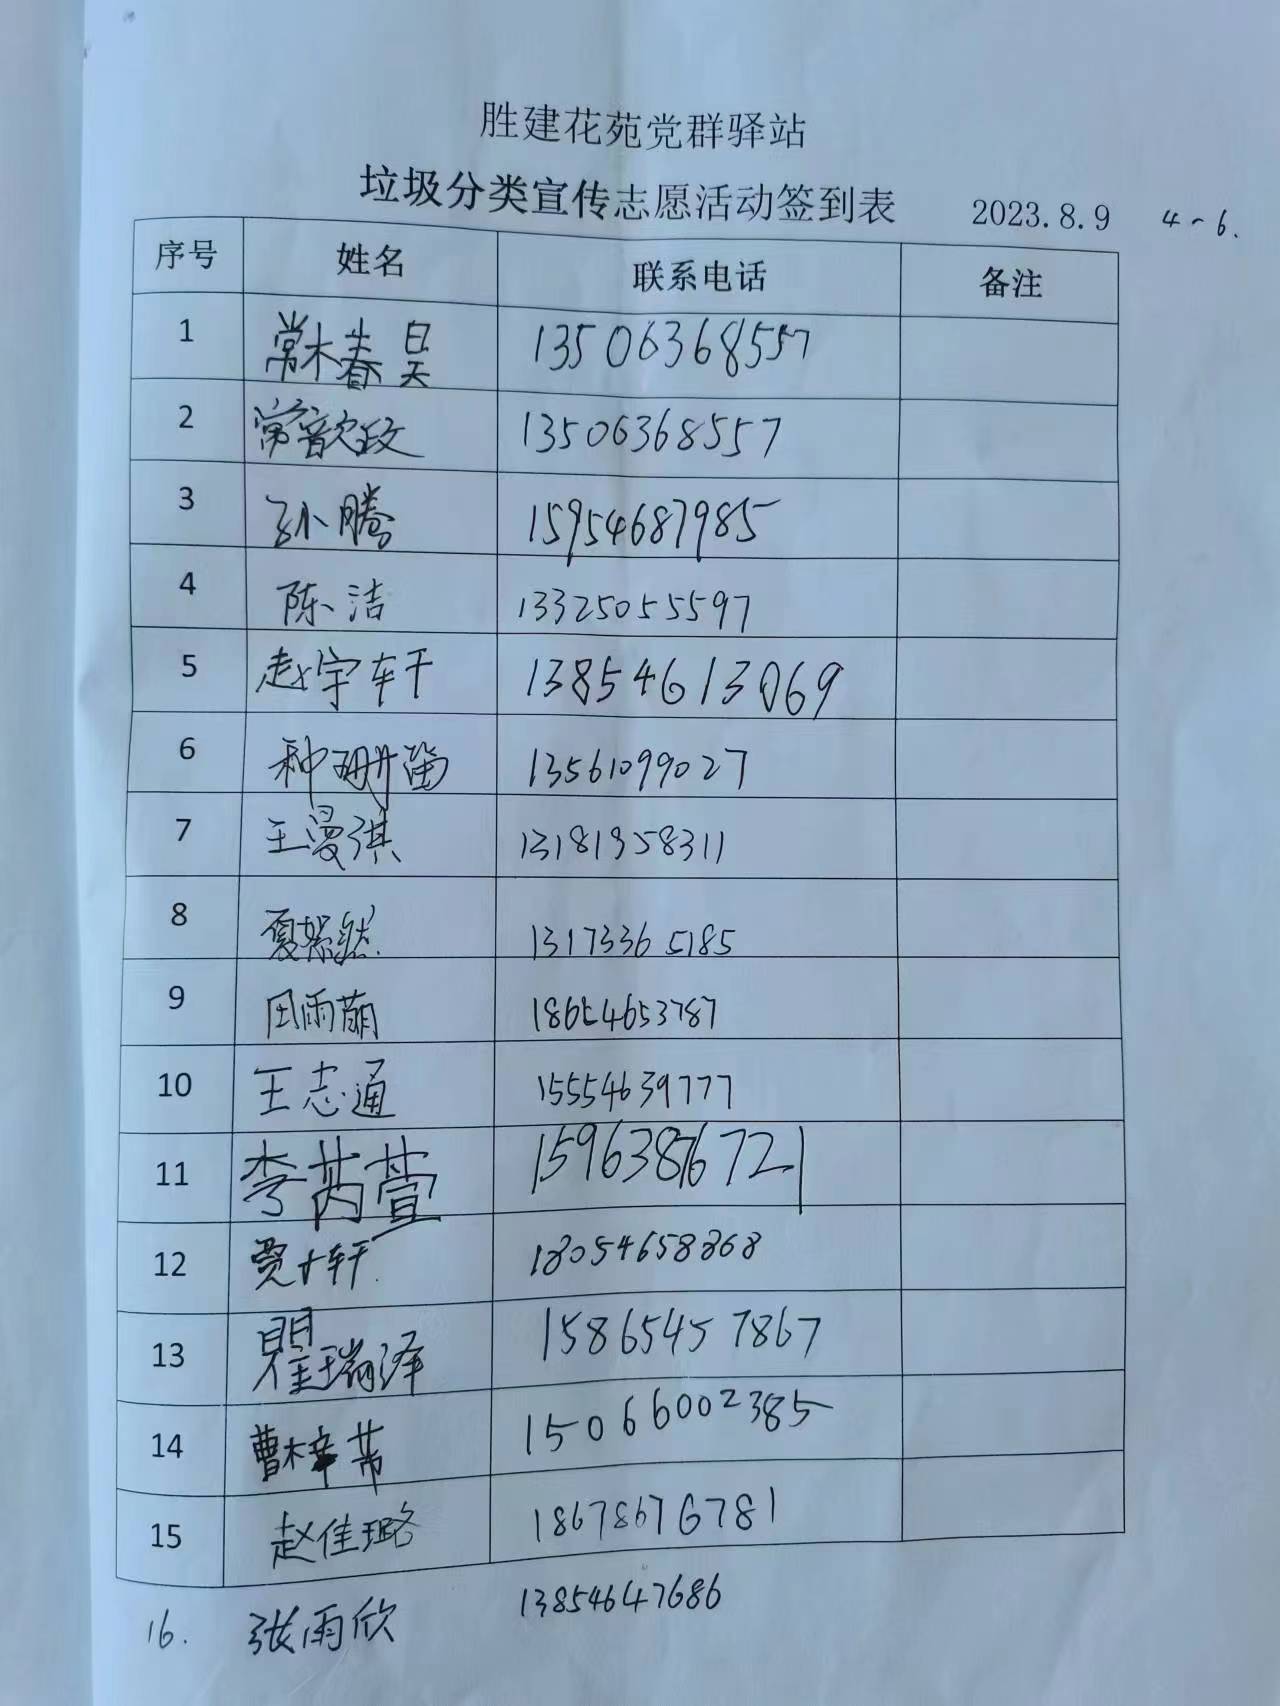 胜建花苑党群驿站
垃圾分类宣传志愿活动签到表 2023.8.9 4~6.
序号 姓名 联系电话 备注
1 常木春昊 13506368557
2 常歆政 13506368557
3 孙腾 15954687985
4 陈洁 13325055597
5 赵宇轩 13854613069
6 种珊笛 13561099027
7 王漫淇 13181958311
8 夏嫣然 13173365185
9 田雨萌 18654653787
10 王志通 15554639777
11 李芮萱 15963876721
12 贾十轩 18054658868
13 瞿瑞泽 15865457867
14 曹梓芾 15066002385
15 赵佳璐 18678676781
16. 张雨欣 13854647686